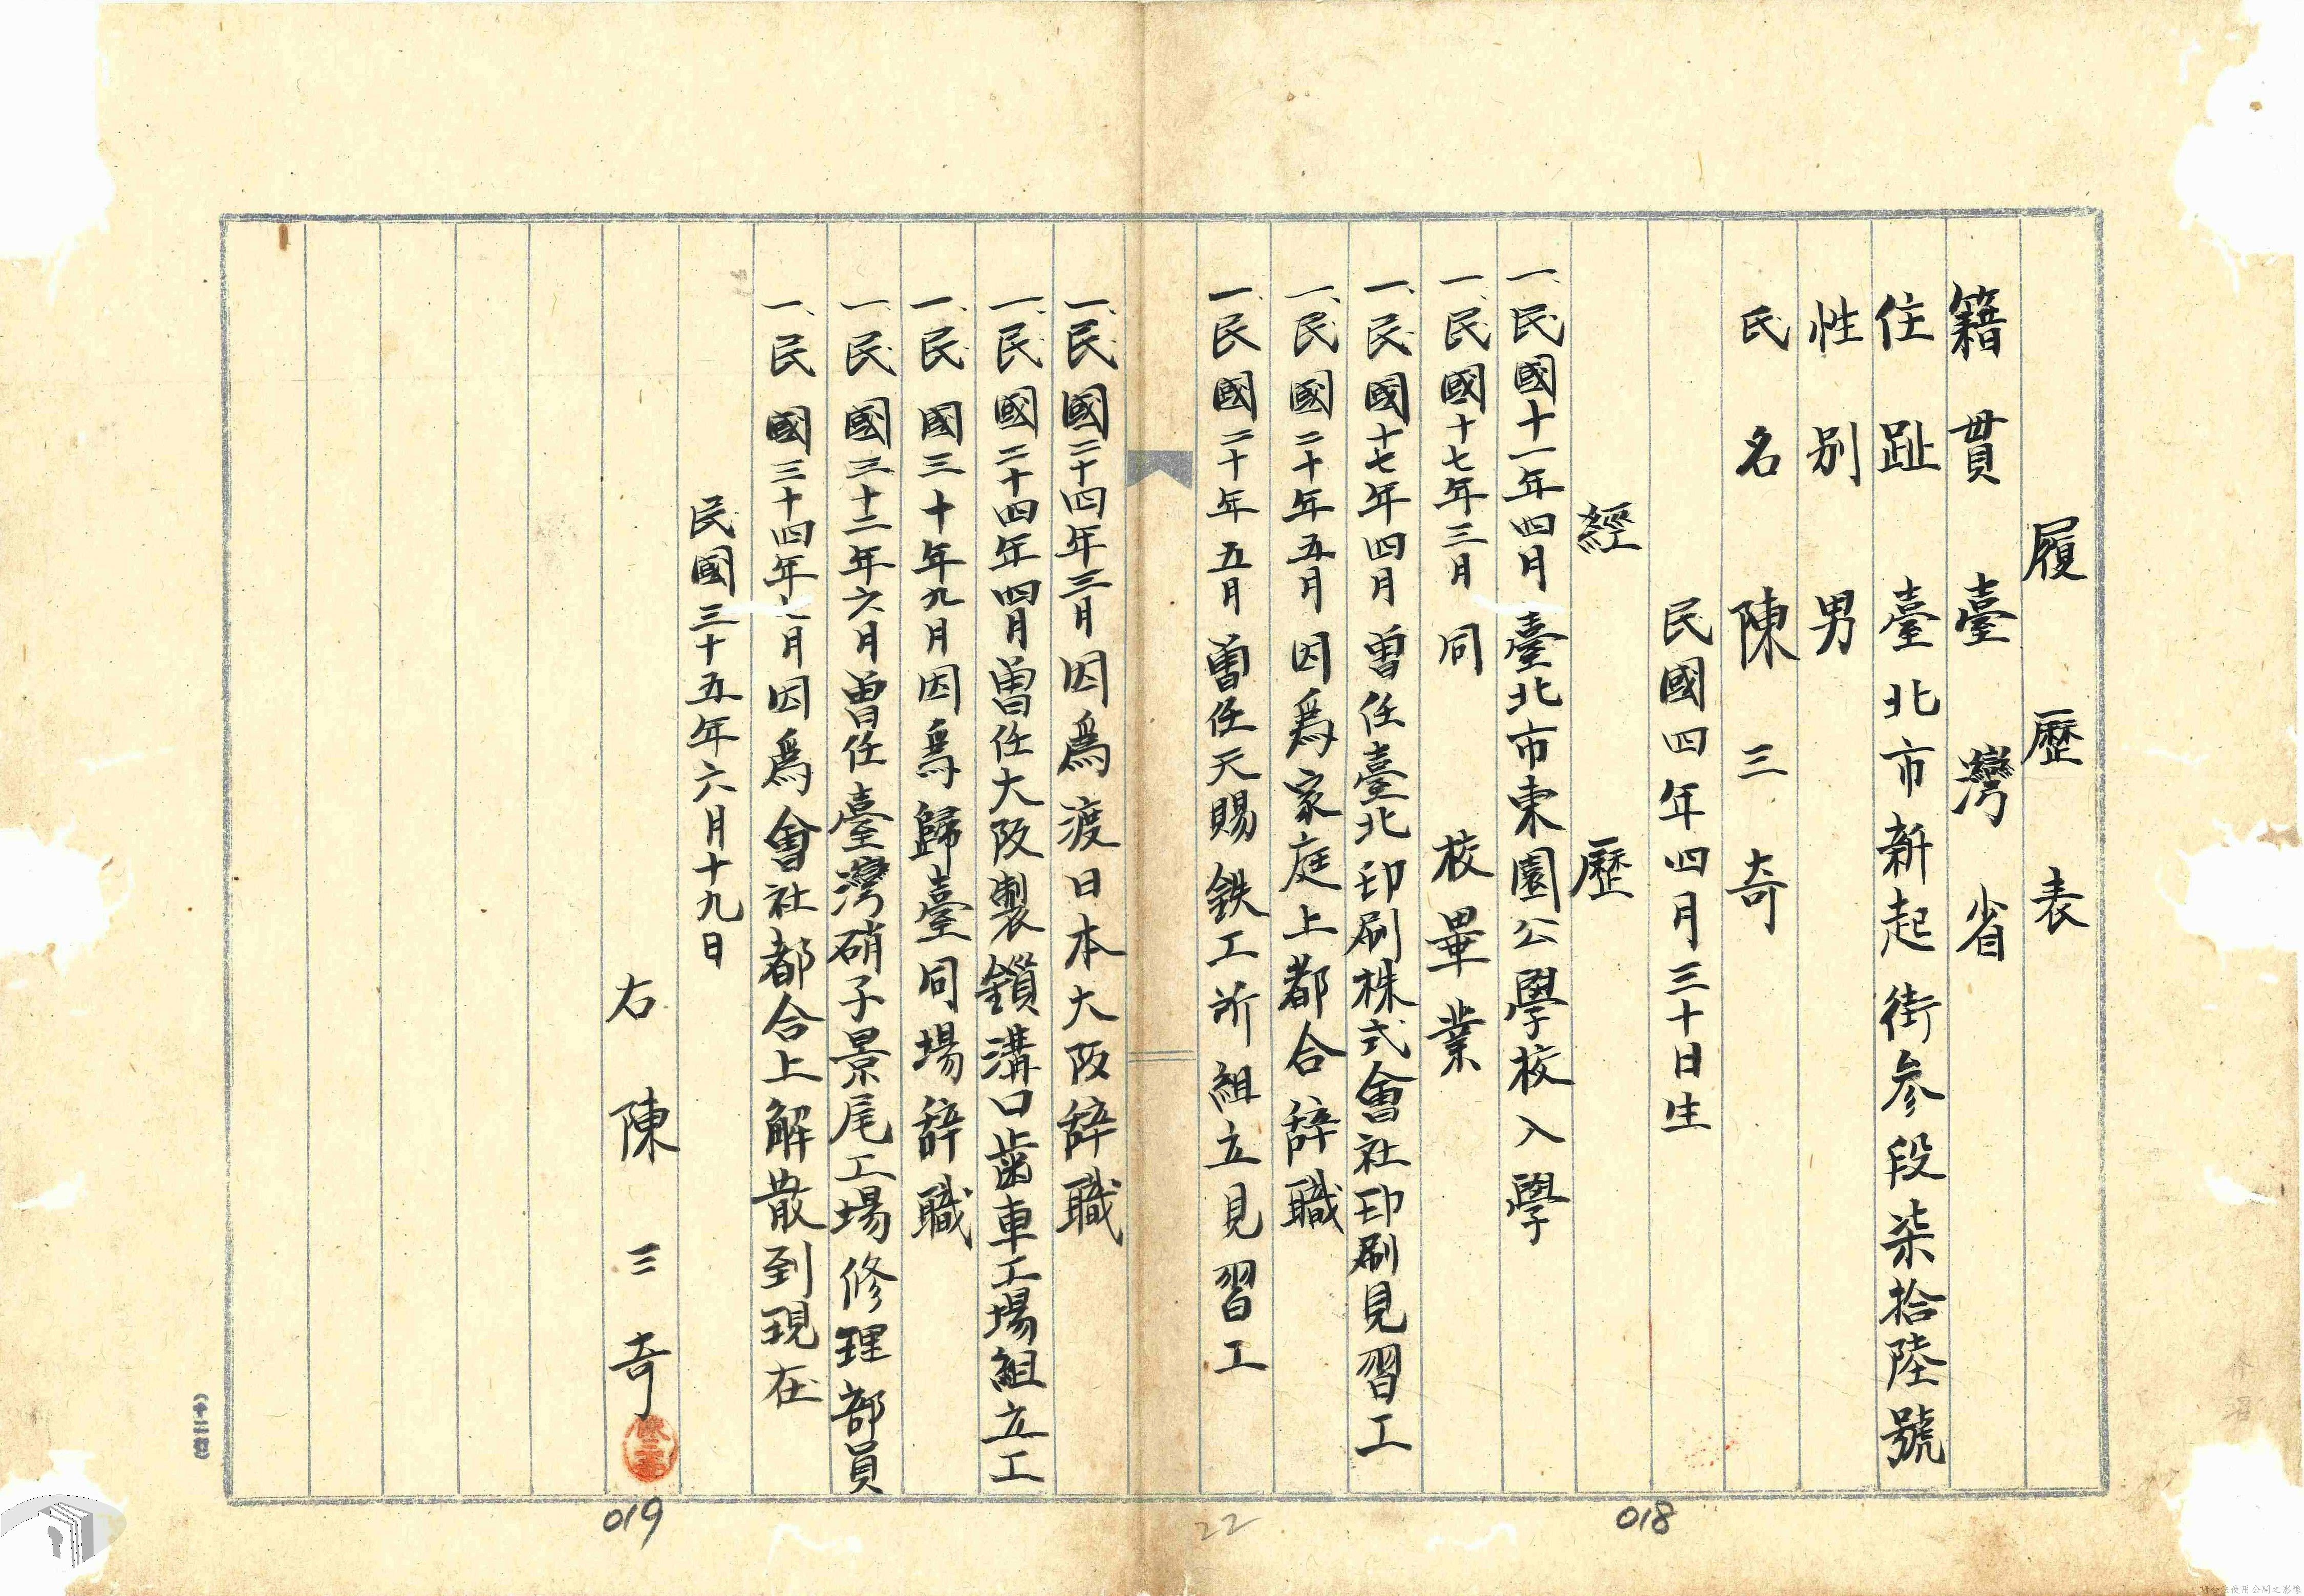 履歷表
籍貫 臺灣省
住趾 臺北市新起街参段柒拾陸號
性别 男
氏名 陳三奇
民國四年四月三十日生
經歷
一、民國十一年四月 臺北市東園公學校入學
一、民國十七年三月 同校畢業
一、民國十七年四月 曽任臺北印刷株式會社印刷見習工
一、民國二十年五月 因爲家庭上都合辞職
一、民國二十年五月 曽任天賜鉄工所組立見習工
一、民國二十四年三月因爲渡日本大阪辞職
一、民國二十四年四月曽任大阪製鎖溝口歯車工場組立工
一、民國三十年九月因爲歸臺同場辞職
一、民國三十二年六月曽任臺灣硝子景尾工場修理部員
一、民國三十四年七月因爲會社都合上解散到現在
民國三十五年六月十九日
右 陳三奇
018
22
019